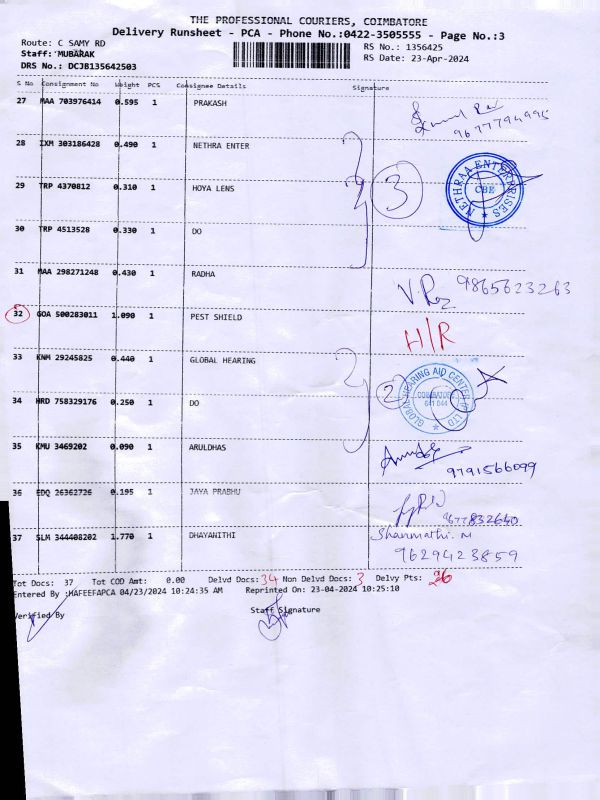 THE PROFESSIONAL COURIERS, COIMBATORE
Delivery Runsheet - PCA - Phone No.:0422-3505555 - Page No.:3
Route: C SAMY RD
RS No.: 1356425
Staff: MUBARAK
RS Date: 23-Apr-2024
DRS No.: DCJB135642503
S No Consignment No Weight PCS Consignee Details Signature
27 MAA 703976414 0.595 1 PRAKASH
9677794995
28 IXM 303186428 0.490 1 NETHRA ENTER
29 TRP 4370812 0.310 1 HOYA LENS
3
NETHRAA ENTERPRISES
CBE
30 TRP 4513528 0.330 1 DO
31 MAA 298271248 0.430 1 RADHA
9865623263
32 GOA 500283011 1.090 1 PEST SHIELD
H/R
33 KNM 29245825 0.440 1 GLOBAL HEARING
34 HRD 758329176 0.250 1 DO
2
GLOBAL HEARING AID CENTER LTD
COIMBATORE
641 044
35 KMU 3469202 0.090 1 ARULDHAS
9791566099
36 EDQ 26362726 0.195 1 JAYA PRABHU
9677832640
37 SLM 344408202 1.770 1 DHAYANITHI
Shanmathi. M
9629423859
Tot Docs: 37 Tot COD Amt: 0.00 Delvd Docs: 34 Non Delvd Docs: 3 Delvy Pts: 26
Entered By :HAFEEFAPCA 04/23/2024 10:24:35 AM Reprinted On: 23-04-2024 10:25:10
Verified By
Staff Signature